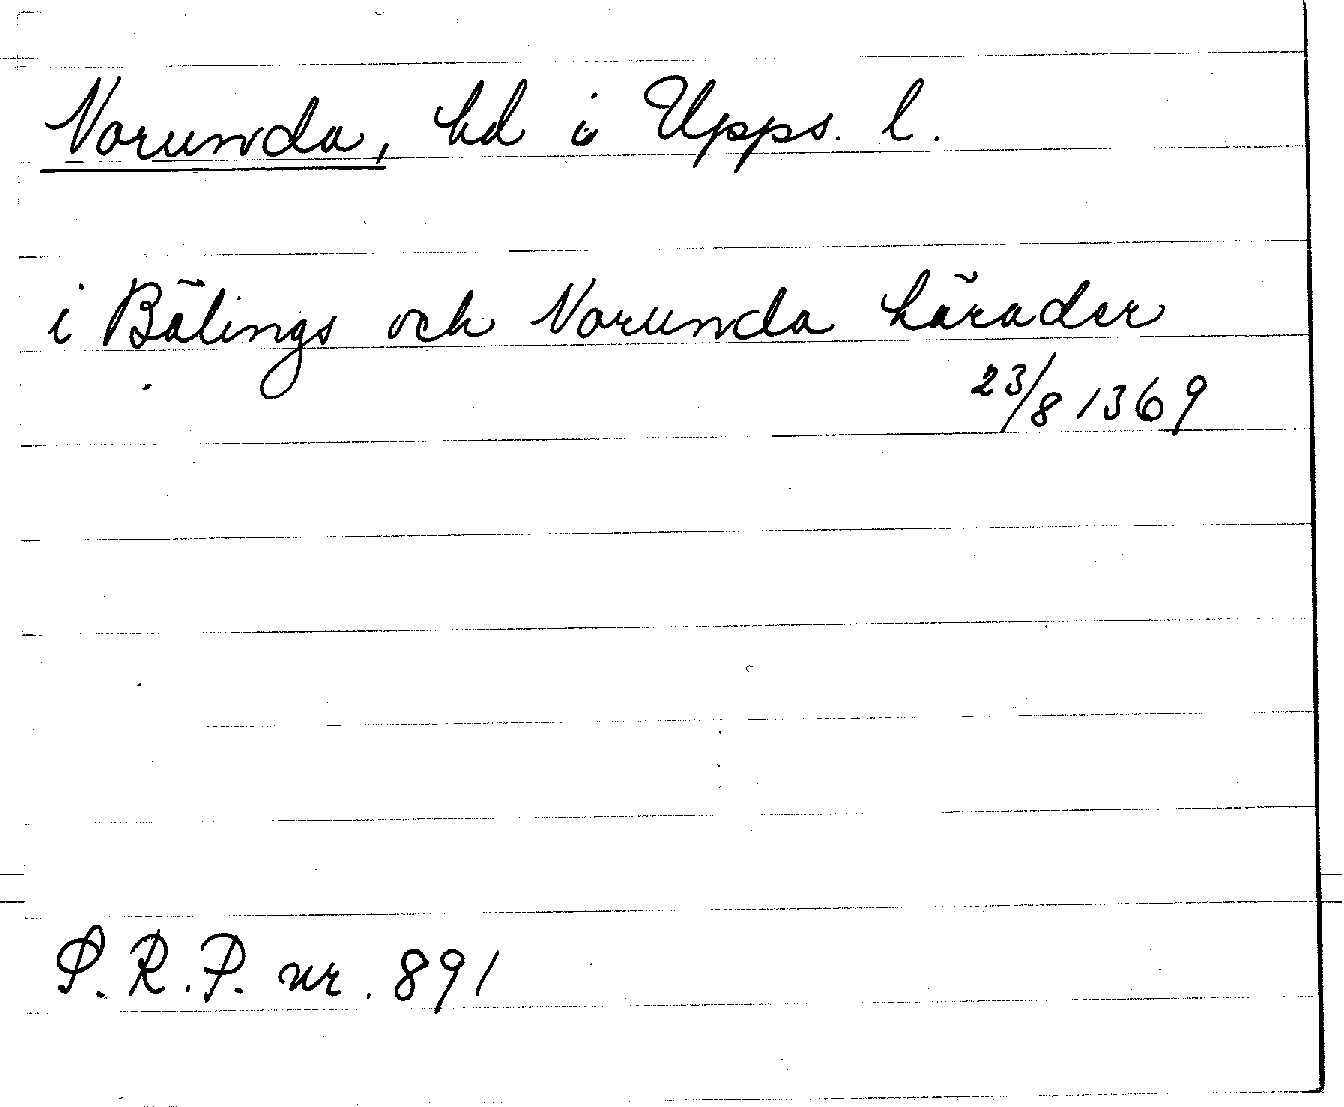 Norunda, hd i Upps. l.
i Bälings och Norunda härader
23/8 1369
S. R. P. nr. 891